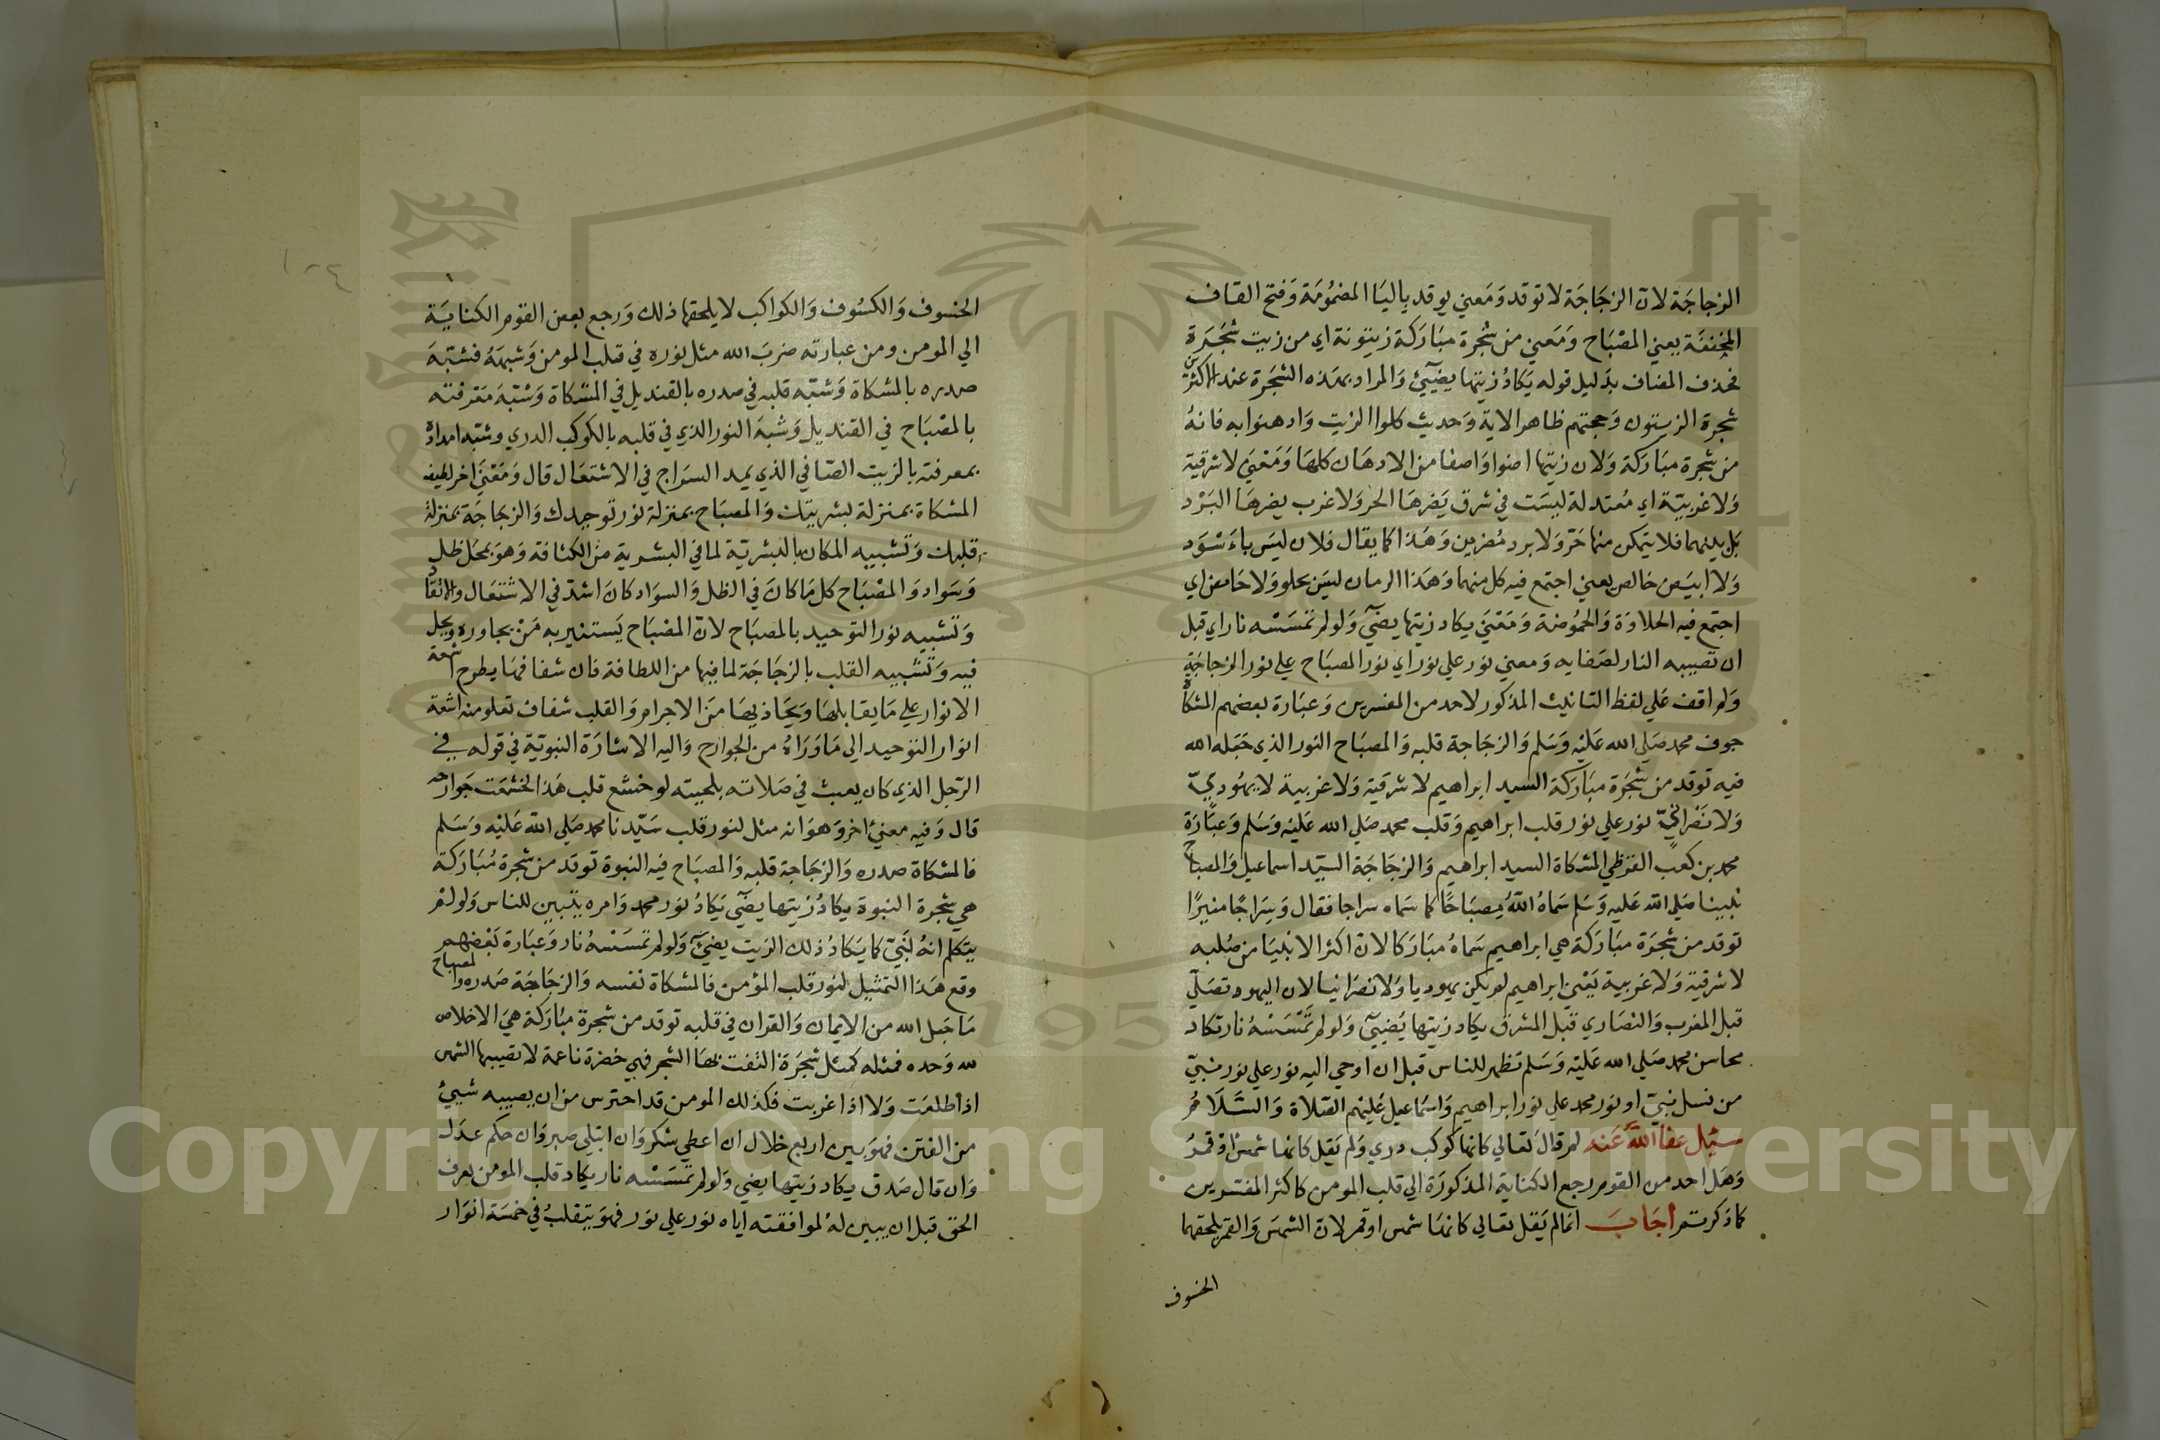 الزجاجة لان الزجاجة لا توقد ومعني يوقد ياليا المضمومة وفتح القاف
المخففة يعني المصباح ومعني من شجرة مباركة زيتونة اي من زيت شجرة
فحذف المضاف بدليل قوله يكاد زيتها يضيئ والمراد بهذه الشجرة عند الاكثرين
شجرة الزيتون وحجتهم ظاهر الاية وحديث كلوا الزيت وادهنوا به فانه
من شجرة مباركة ولان زيتها اضوا واصفا من الادهان كلها ومعني لا شرقية
ولا غربية اي معتدلة ليست في شرق يضرها الحر ولا غرب يضرها البرد
بل بينهما فلا يتمكن منها حر ولا برد مضرين وهذا كما يقال فلان ليس باسود
ولا ابيض خالص يعني اجتمع فيه كل منهما وهذا الرمان ليس بحلو ولا حامض اي
اجتمع فيه الحلاوة والحموضة ومعني يكاد زيتها يضي ولو لم تمسسه نار اي قبل
ان تصيبه النار لصفايه ومعني نور علي نور اي نور المصباح علي نور الزجاجة
ولم اقف علي لفظ التانيث المذكور لاحد من المفسرين وعبارة بعضهم المشكاة
جوف محمد صلي الله عليه وسلم والزجاجة قلبه والمصباح النور الذي جعله الله
فيه توقد من شجرة مباركة السيد ابراهيم لا شرقية ولا غربية لا يهودي
ولا نصراني نور علي نور قلب ابراهيم وقلب محمد صلي الله عليه وسلم وعبارة
محمد بن كعب القرظي المشكاة السيد ابراهيم والزجاجة السيد اسماعيل والمصباح
نبينا صلي الله عليه وسلم سماه الله مصباحا كما سماه سراجا فقال وسراجا منيرا
توقد من شجرة مباركة هي ابراهيم سماه مباركا لان اكثر الانبيا من صلبه
لا شرقية ولا غربية يعني ابراهيم لم يكن يهوديا ولا نصرانيا لان اليهود تصلي
قبل المغرب والنصاري قبل المشرق يكاد زيتها يضيئ ولو لم تمسسه نار تكاد
محاسن محمد صلي الله عليه وسلم تظهر للناس قبل ان اوحي اليه نور علي نور نبي
من نسل نبي او نور محمد علي نور ابراهيم واسماعيل عليهم الصلاة والسلام
سئل عفا الله عنه لم قال تعالي كانها كوكب دري ولم يقل كانها شمس او قمر
وهل احد من القوم رجع الكناية المذكورة الي قلب المومن كاكثر المفسرين
كما ذكرتم اجاب انما لم يقل تعالي كانها شمس او قمر لان الشمس والقمر يلحقهما
الخسوف
الخسوف والكسوف والكواكب لا يلحقها ذلك ورجع بعض القوم الكناية
الي المومن ومن عبارته ضرب الله مثل نوره في قلب المومن وشبهه فشبه
صدره بالمشكاة وشبه قلبه في صدره بالقنديل في المشكاة وشبه معرفته
بالمصباح في القنديل وشبه النور الذي في قلبه بالكوكب الدري وشبه امداده
بمعرفته بالزيت الصافي الذي يمد السراج في الاشتعال قال ومعني اخر لطيف
المشكاة بمنزلة بشريتك والمصباح بمنزلة نور توحيدك والزجاجة بمنزلة
قلبك وتشبيه المكان بالبشرية لما في البشرية من الكثافة وهو محل ظل
وسواد والمصباح كل ما كان في الظل والسواد كان اشد في الاشتعال
وتشبيه نور التوحيد بالمصباح لان المصباح يستنير به من يجاوره ويحل
فيه وتشبيه القلب بالزجاجة لما فيها من اللطافة فان شفافها يطرح اشعة
الانوار علي ما يقابلها ويحاذيها من الاجرام والقلب شفاف تعلو منه اشعة
انوار التوحيد الي ما وراه من الجوارح واليه الاشارة النبوية في قوله في
الرجل الذي كان يعبث في صلاته بلحيته لو خشع قلب هذا لخشعت جوارحه
قال وفيه معني اخر وهو انه مثل لنور قلب سيدنا محمد صلي الله عليه وسلم
فالمشكاة صدره والزجاجة قلبه والمصباح فيه النبوة توقد من شجرة مباركة
هي شجرة النبوة يكاد زيتها يضي يكاد نور محمد وامره يتبين للناس ولو لم
يتكلم انه لنبي كما يكاد ذلك الزيت يضيئ ولو لم تمسسه نار وعبارة بعضهم
وقع هذا التمثيل لنور قلب المؤمن فالمشكاة نفسه والزجاجة صدره والمصباح
ما جعل الله من الايمان والقران في قلبه توقد من شجرة مباركة هي الاخلاص
لله وحده فمثله كمثل شجرة التفت بها الشجر فهي خضرة ناعمة لا تصيبها الشمس
اذا طلعت ولا اذا غربت فكذلك المومن قد احترس من ان يصيبه شيئ
من الفتن فهو بين اربع خلال ان اعطي شكر وان ابتلي صبر وان حكم عدل
وان قال صدق يكاد زيتها يضي ولو لم تمسسه نار يكاد قلب المومن يعرف
الحق قبل ان يبين له لموافقته اياه نور علي نور فهو يتقلب في خمسة انوار
Copyright © King Saud University